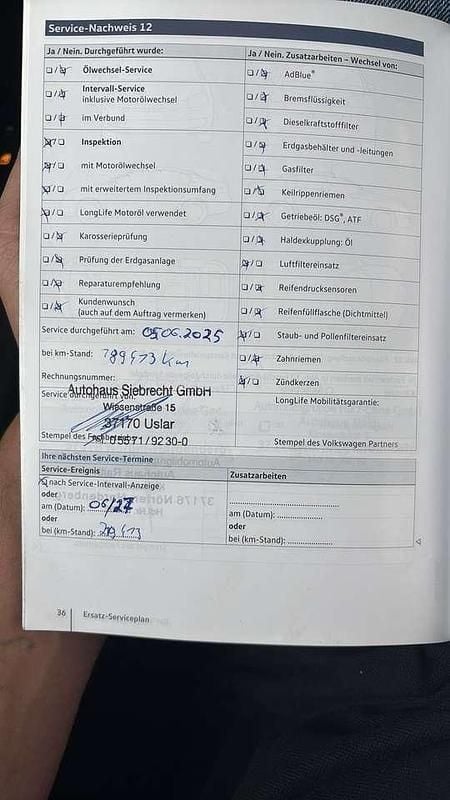 Service-Nachweis 12
Ja / Nein. Durchgeführt wurde:
Ölwechsel-Service
Intervall-Service
inklusive Motorölwechsel
im Verbund
Inspektion
mit Motorölwechsel
mit erweitertem Inspektionsumfang
LongLife Motoröl verwendet
Karosserieprüfung
Prüfung der Erdgasanlage
Reparaturempfehlung
Kundenwunsch
(auch auf dem Auftrag vermerken)
Service durchgeführt am: 05.06.2025
bei km-Stand: km
Rechnungsnummer:
Autohaus Siebrecht GmbH
Service durchgeführt von:
Wiesenstraße 15
37170 Uslar
Stempel des
05571/9230-0
Ja / Nein. Zusatzarbeiten – Wechsel von:
AdBlue®
Bremsflüssigkeit
Dieselkraftstofffilter
Erdgasbehälter und -leitungen
Gasfilter
Keilrippenriemen
Getriebeöl: DSG®, ATF
Haldexkupplung: Öl
Luftfiltereinsatz
Reifendrucksensoren
Reifenfüllflasche (Dichtmittel)
Staub- und Pollenfiltereinsatz
Zahnriemen
Zündkerzen
LongLife Mobilitätsgarantie:
Stempel des Volkswagen Partners
Ihre nächsten Service-Termine
Service-Ereignis
nach Service-Intervall-Anzeige
oder
am (Datum): 06/27
oder
bei (km-Stand):
Zusatzarbeiten
am (Datum):
oder
bei (km-Stand):
36 Ersatz-Serviceplan